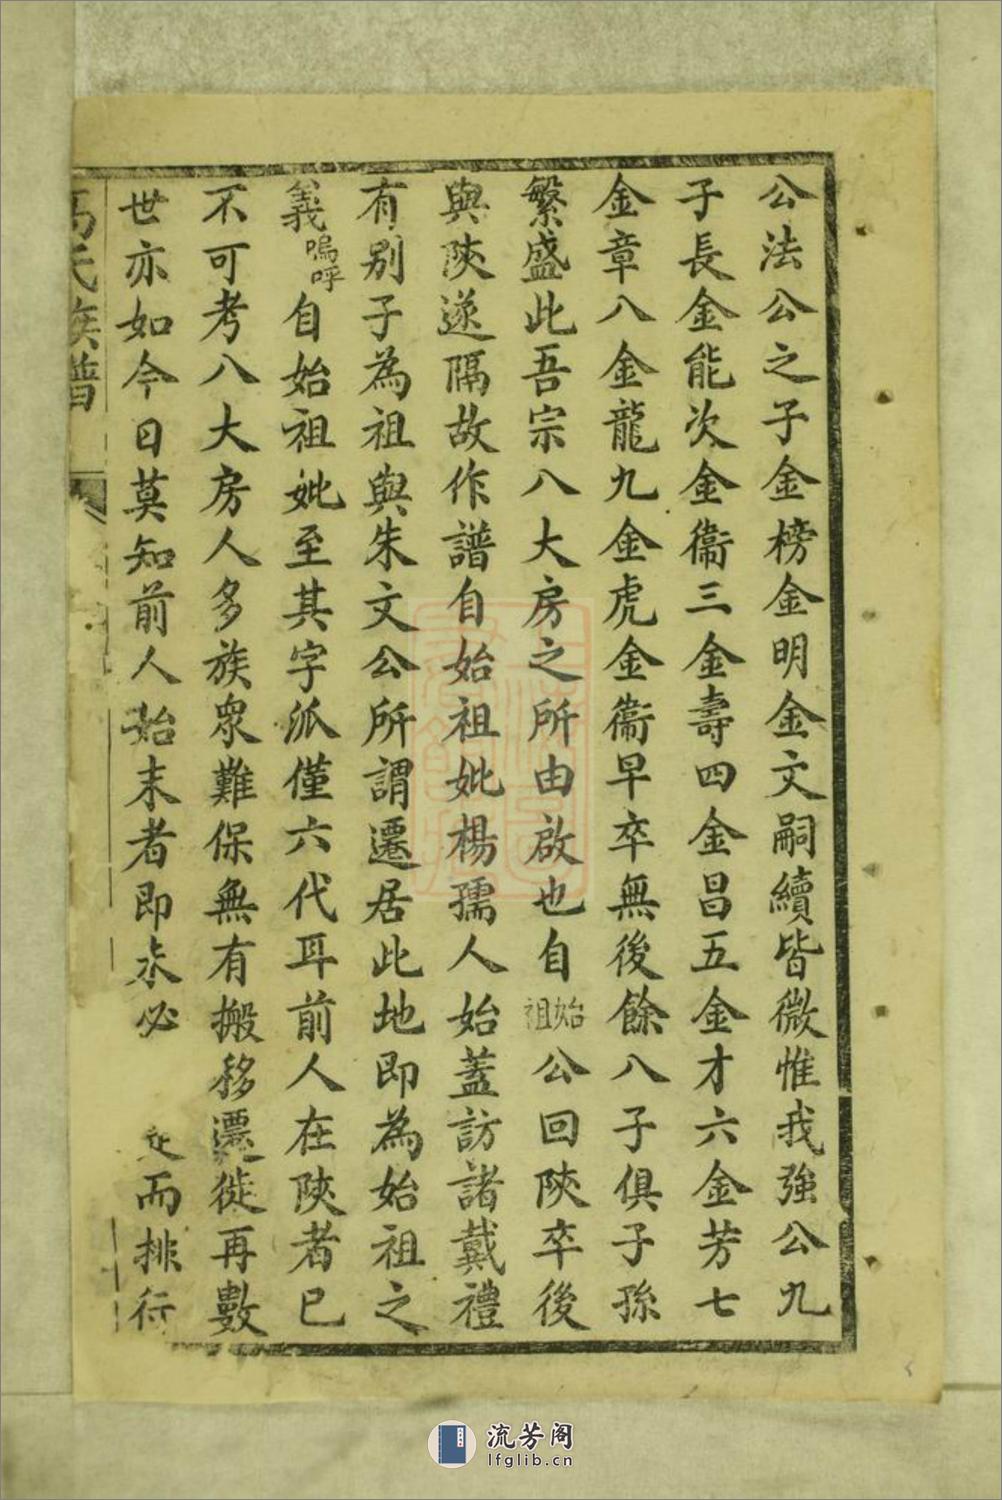 公法公之子金榜金明金文嗣續皆微惟我強公九
子長金能次金衞三金壽四金昌五金才六金芳七
金章八金龍九金虎金衞早卒無後餘八子俱子孫
繁盛此吾宗八大房之所由啟也自始祖公回陝卒後
與陝遂隔故作譜自始祖妣楊孺人始蓋訪諸戴禮
有别子為祖與朱文公所謂遷居此地即為始祖之
義嗚呼自始祖妣至其字派僅六代耳前人在陝者已
不可考八大房人多族眾難保無有搬移遷徙再數
世亦如今日莫知前人始末者即派必而排行
馮氏族譜
流芳阁
lfglib.cn